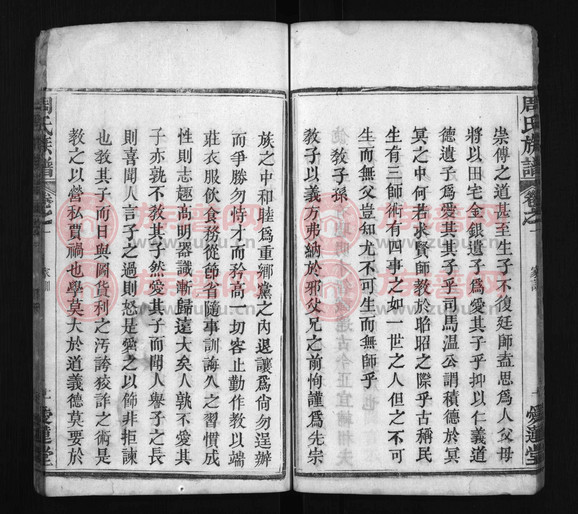 周氏族譜
卷之一
家訓
愛蓮堂
崇傳之道甚至生子不復廷師盍思為人父母
將以田宅金銀遺子為愛其子乎抑以仁義道
德遺子為愛其其子乎司馬溫公謂積德於冥
冥之中何若求賢師教於昭昭之際乎古稱民
生有三師術有四事之如一世之人但之不可
生而無父豈知尤不可生而無師乎
教子孫
教子以義方弗納於邪父兄之前恂謹為先宗
族之中和睦為重鄉黨之內退讓為尙勿逞辦
而爭勝勿恃才而矜高一切容止動作教以端
莊衣服飲食務從節省隨事訓誨久之習慣成
性則志趣高明器識漸歸遠大矣人孰不愛其
子亦孰不教其子然愛其子而聞人譽子之長
則喜聞人言子之過則怒是愛之以飾非拒諫
也教其子而日與圖貨利之汚誇狡詐之術是
教之以營私賈禍也學莫大於道義德莫要於
周氏族譜
卷之一
家訓
愛蓮堂
www.zupu.cn
www.zupu.cn